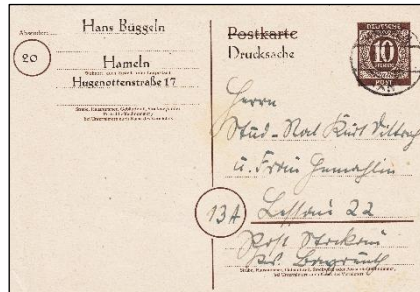 Absender:
Hans Büggeln
20
Hameln
Hugenottenstraße 17
Straße, Hausnummer, Gebäudeteil, Stockwerk oder Postschließfachnummer,
bei Untermietern auch Name des Vermieters
Postkarte
Drucksache
DEUTSCHE
10
PFENNIG
POST
Herrn
Stud-Rat Kurt
u. Frau Gemahlin
13A
22
Post
Bayreuth
Straße, Hausnummer, Gebäudeteil, Stockwerk oder Postschließfachnummer,
bei Untermietern auch Name des Vermieters